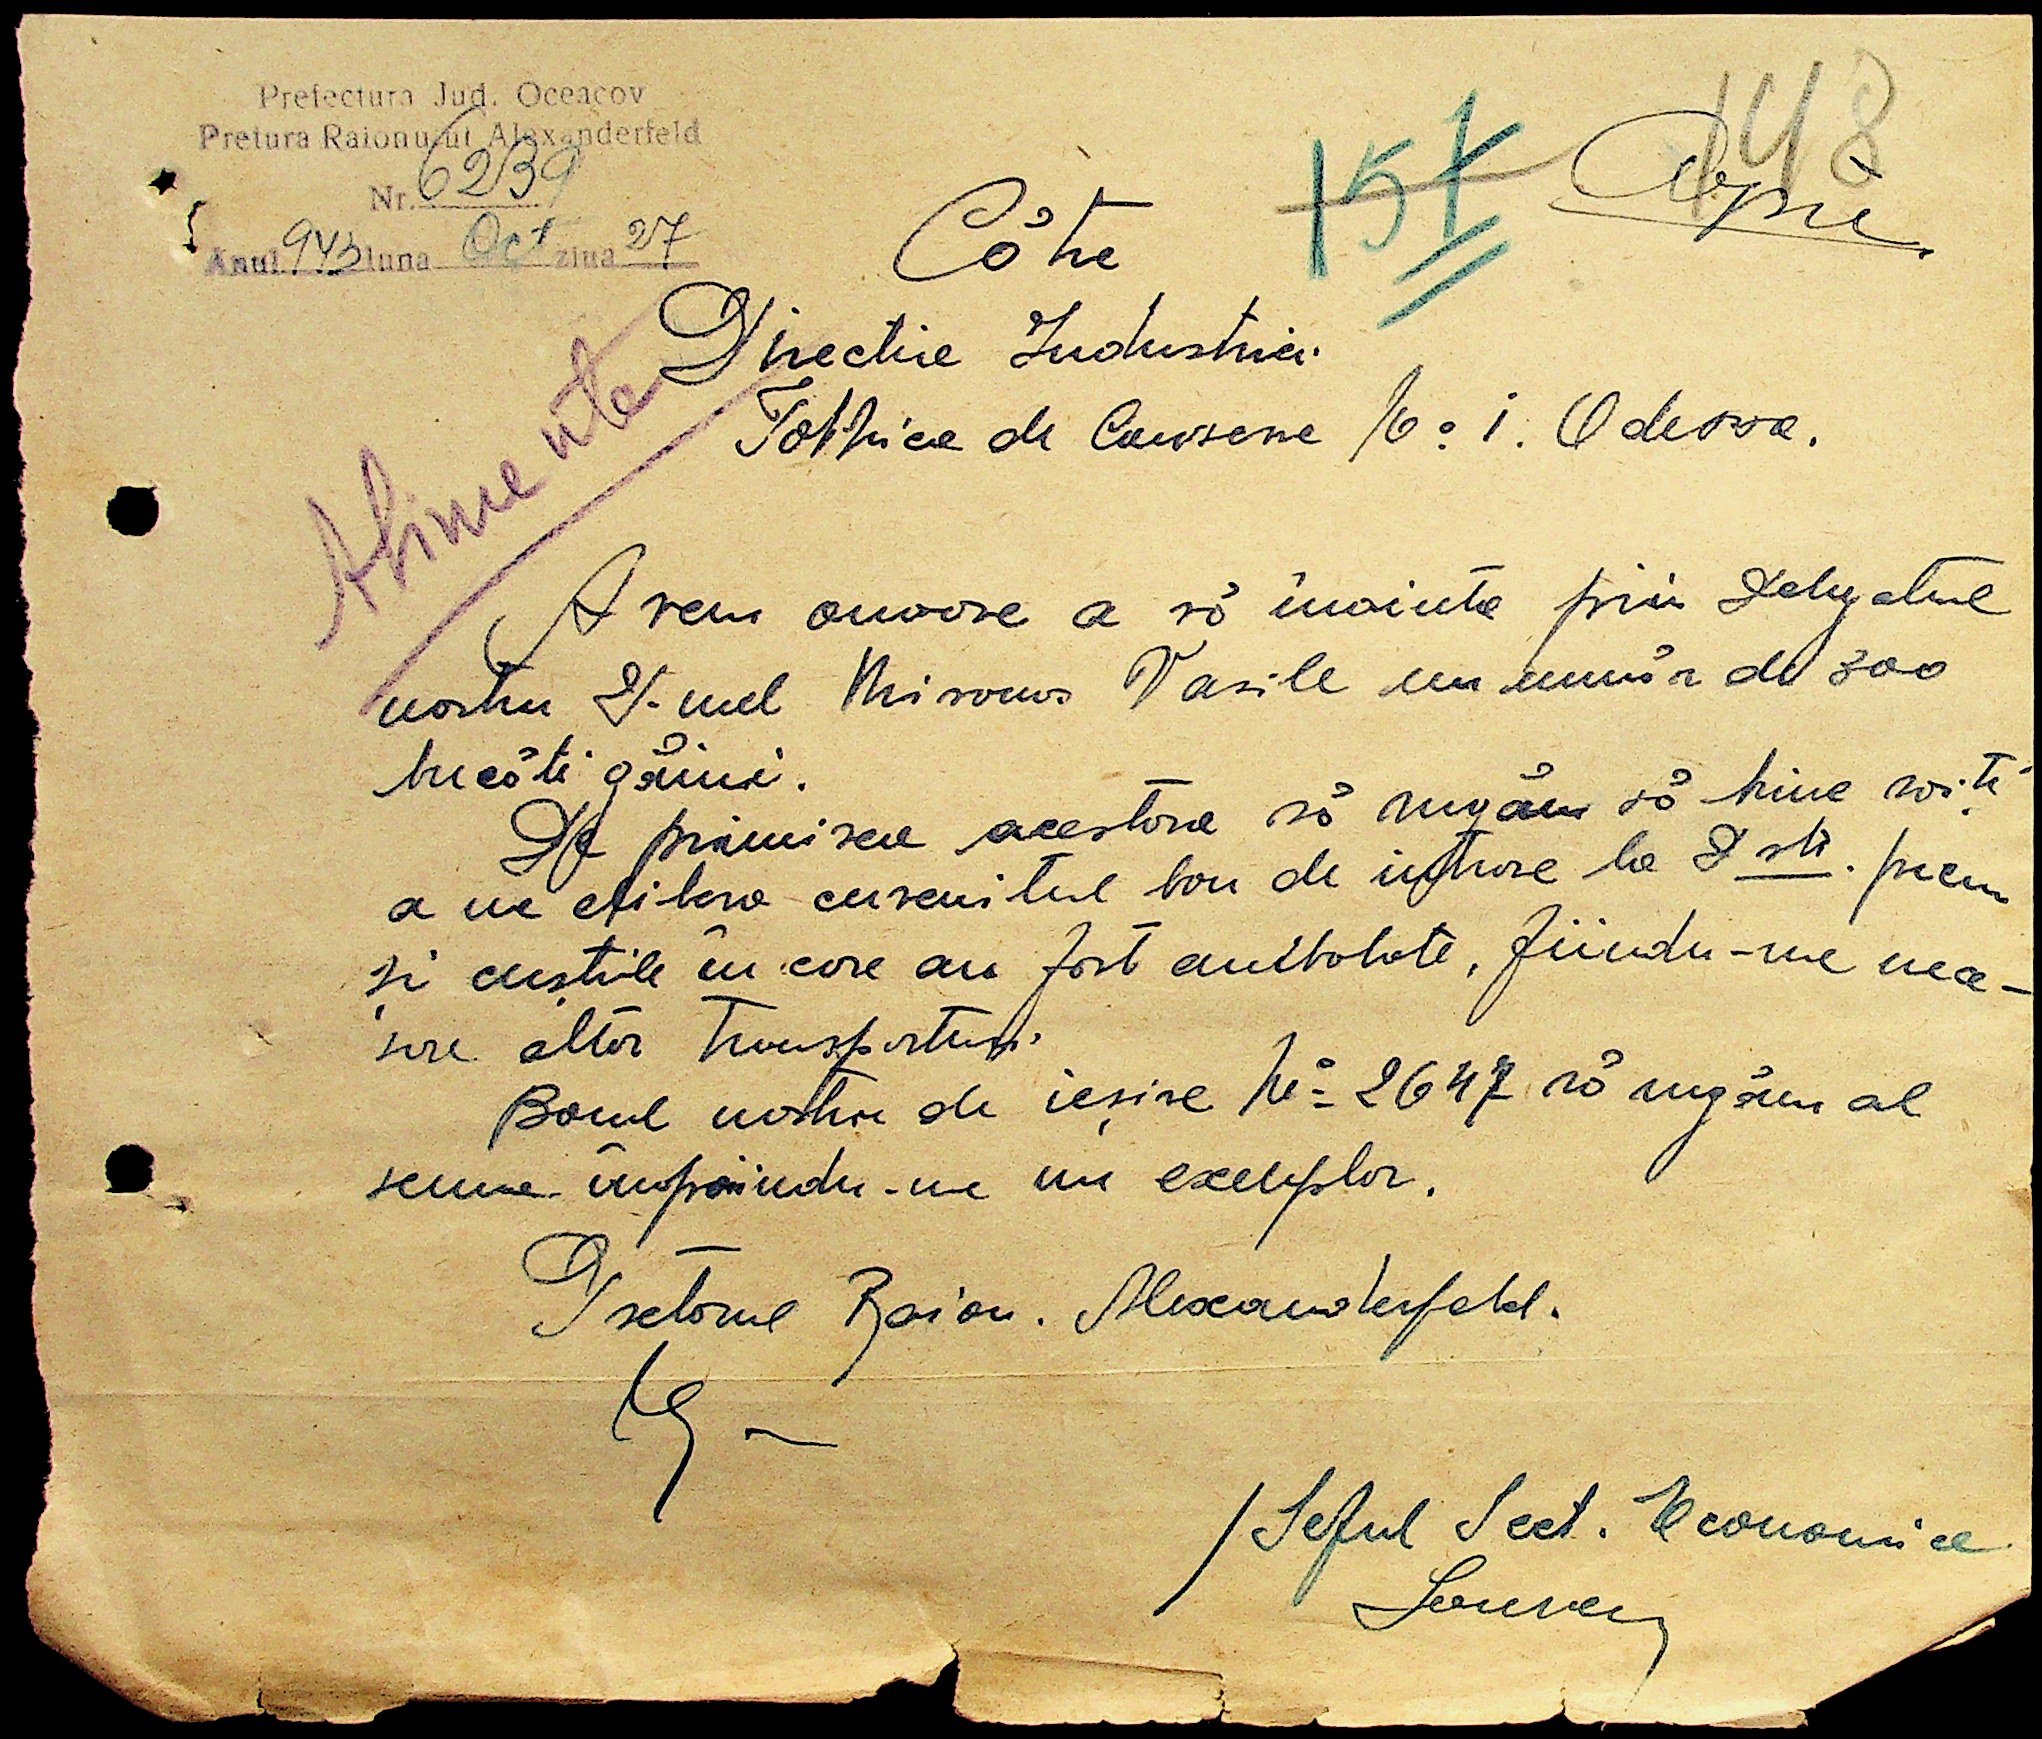 Prefectura Jud. Oceacov
Pretura Raionului Alexanderfeld
Nr. 6239
Anul 943 luna Oct ziua 27
148
151
Copie
Către
Directia Industriei
Fabrica de Conserve No: 1. Odessa.
Alimente
Avem onoare a vă înainta prin Delegatul
nostru D-nul Vasile un număr de 300
bucăti găini.
De primirea acestora vă rugăm să bine voiti
a ne elibera cuvenitul bon de intrare la Dstă. precum
si custile în care au fost ambalate, fiindu-ne nece-
sare altor transporturi.
Bonul nostru de ieșire No= 2647 vă rugăm al
semna înapoindu-ne un exemplar.
Pretorul Raion. Alexanderfeld.
/ Seful Sect. Economice